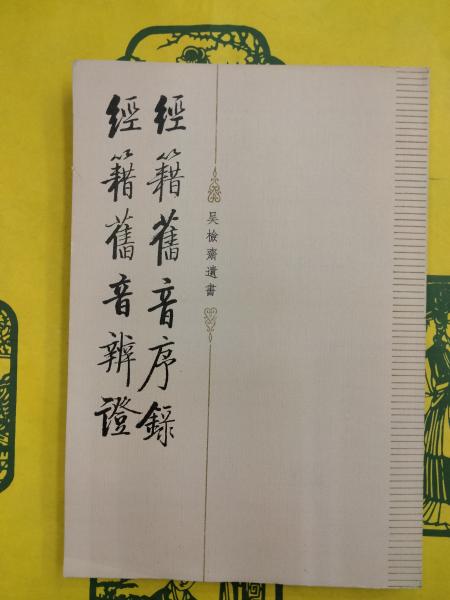 吴檢齋遺書
經籍舊音序錄
經籍舊音辨證